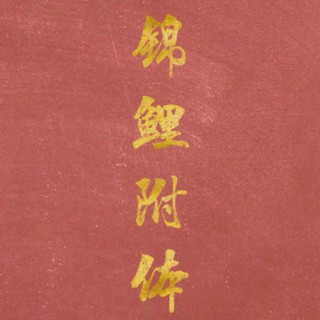 锦鲤附体